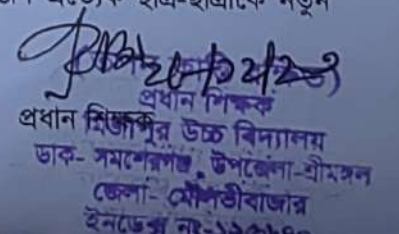 প্রত্যেক ছাত্র-ছাত্রীকে নতুন
প্রধান শিক্ষক
প্রধান শিক্ষক
মির্জাপুর উচ্চ বিদ্যালয়
ডাক- সমশেরগঞ্জ, উপজেলা-শ্রীমঙ্গল
জেলা- মৌলভীবাজার
ইনডেক্স নং-